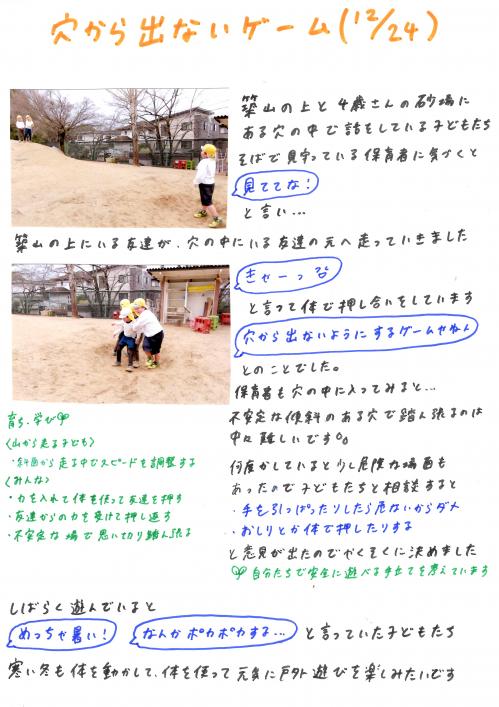 穴から出ないゲーム(12/24)
築山の上と4歳さんの砂場に
ある穴の中で話をしている子どもたち
そばで見守っている保育者に気づくと
見ててな!
と言い…
築山の上にいる友達が、穴の中にいる友達の元へ走っていきました
きゃーっ
と言って体で押し合いをしています
穴から出ないようにするゲームやねん
とのことでした。
保育者も穴の中に入ってみると…
不安定な傾斜のある穴で踏ん張るのは
中々難しいです。
何度かしていると少し危険な場面も
あったので子どもたちと相談すると
・手を引っぱったりしたら危ないからダメ
・おしりとか体で押したりする
と意見が出たのでやくそくに決めました
自分たちで安全に遊べる手立てを考えています
育ち、学び
〈山から走る子ども〉
・斜面から走る中でスピードを調整する
〈みんな〉
・力を入れて体を使って友達を押す
・友達からの力を受けて押し返す
・不安定な場で思い切り踏ん張る
しばらく遊んでいると
めっちゃ暑い!
なんかポカポカする…
と言っていた子どもたち
寒い冬も体を動かして、体を使って元気に戸外遊びを楽しみたいです